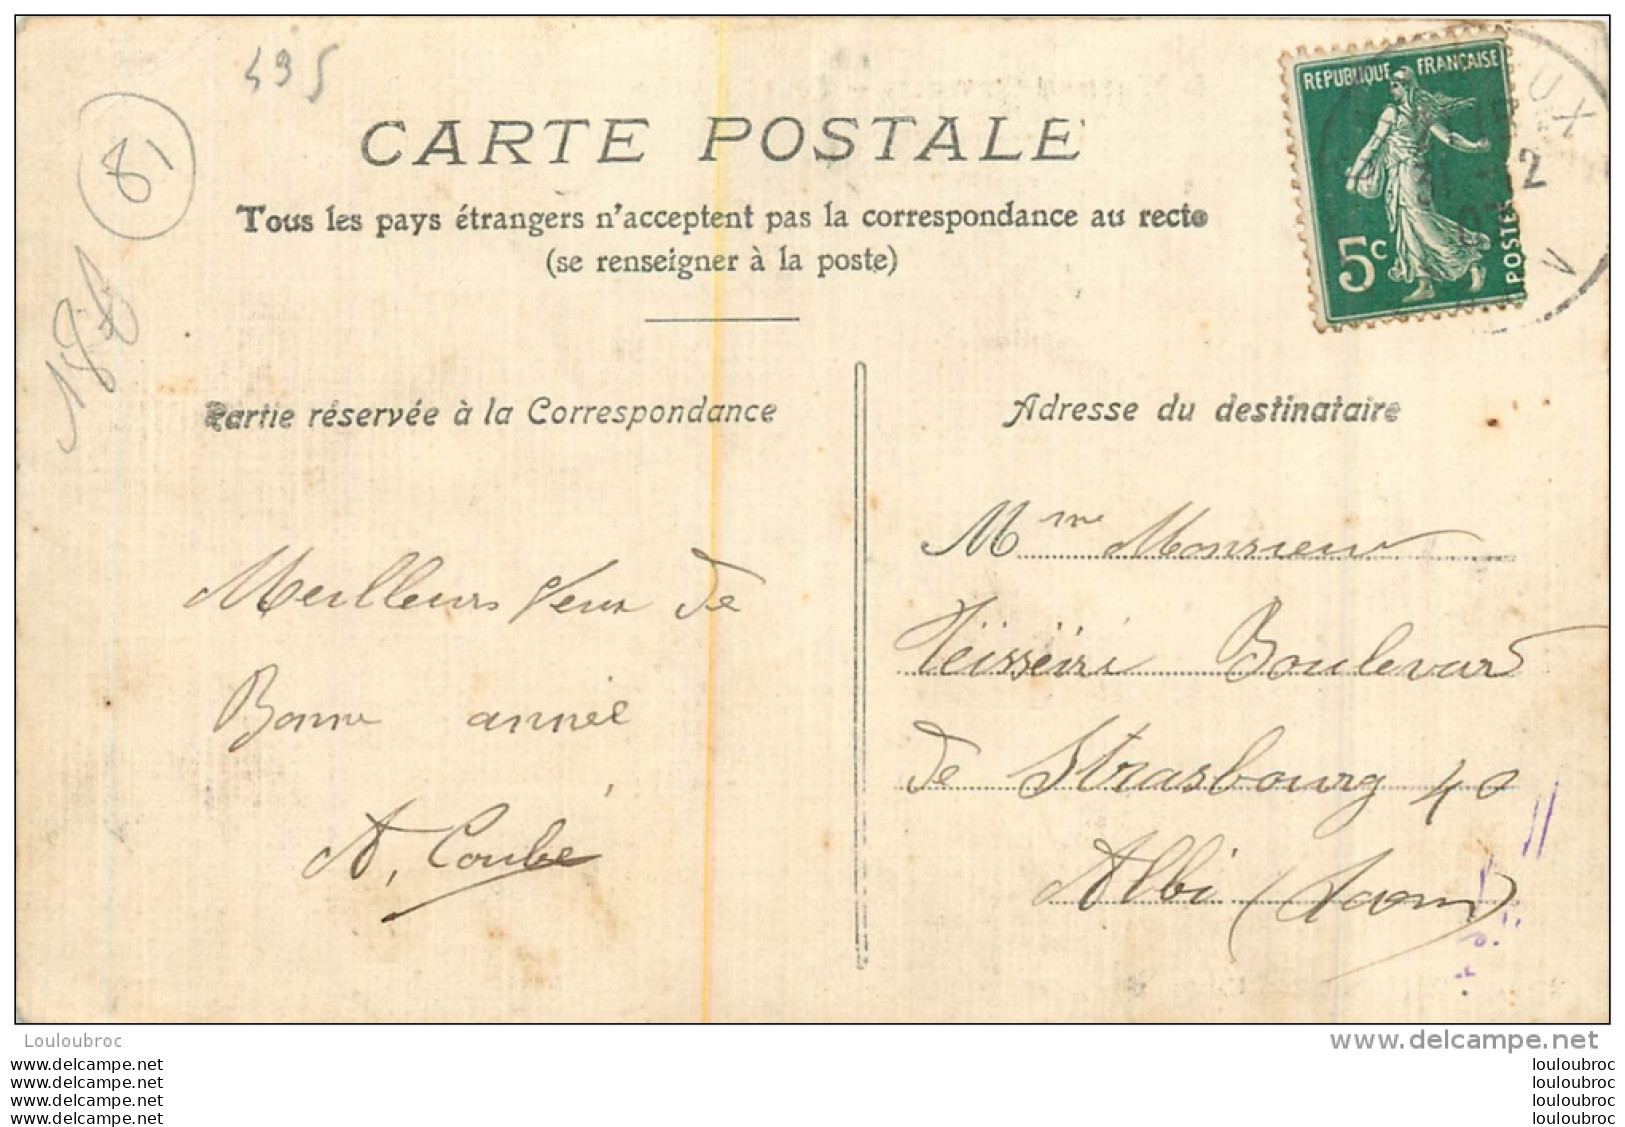 495
81
CARTE POSTALE
Tous les pays étrangers n'acceptent pas la correspondance au recto
(se renseigner à la poste)
REPUBLIQUE FRANÇAISE
5c
POSTES
31 - 12
07
Partie réservée à la Correspondance
Adresse du destinataire
Meilleurs Veux de
Bonne année
A. Coubé
Mme Monsieur
Teisseire Boulevard
de Strasbourg 40
Albi (Tarn)
Louloubroc
www.delcampe.net
www.delcampe.net
www.delcampe.net
www.delcampe.net
www.delcampe.net
louloubroc
louloubroc
louloubroc
louloubroc